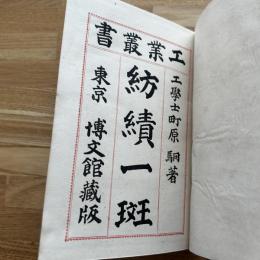 工業叢書
工學士町原駉著
紡績一斑
東京 博文館藏版